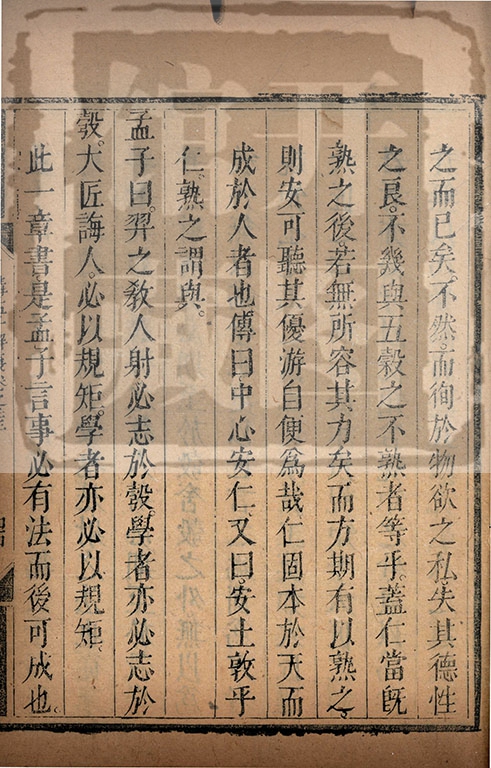 之而已矣。不然。而徇於物欲之私。失其德性
之良。不幾與五穀之不熟者等乎。蓋仁當旣
熟之後。若無所容其力矣。而方期有以熟之。
則安可聽其優游自便爲哉。仁固本於天而
成於人者也。傳曰。中心安仁。又曰。安土敦乎
仁。熟之謂與。
孟子曰。羿之敎人射。必志於彀。學者亦必志於
彀。大匠誨人。必以規矩。學者亦必以規矩。
此一章書。是孟子言事必有法而後可成也。